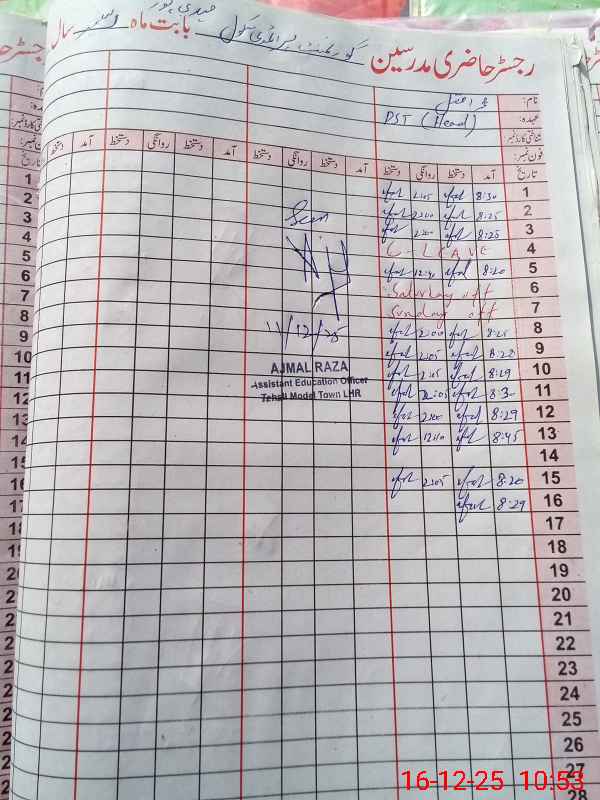 رجسٹر حاضری مدرسین گورنمنٹ پرائمری سکول بابت ماہ سال
نام:
عہدہ: PST (Head)
شناختی کارڈ نمبر
فون نمبر:
تاریخ آمد دستخط روانگی دستخط آمد دستخط روانگی دستخط آمد دستخط روانگی دستخط آمد دستخط
1 8:30 2:05
2 8:25 2:00
3 8:25 2:00
4 C-LEAVE
5 8:20
6 Saturday off
7 Sunday off
8 8:25 2:00
9 8:28 2:05
10 8:29 2:05
11 8:30 2:05
12 8:29 2:00
13 8:45
14
15 8:20 2:05
16 8:29
17
18
19
20
21
22
23
24
25
26
27
28
Seen
11/12/25
AJMAL RAZA
Assistant Education Officer
Tehsil Model Town LHR
16-12-25 10:53